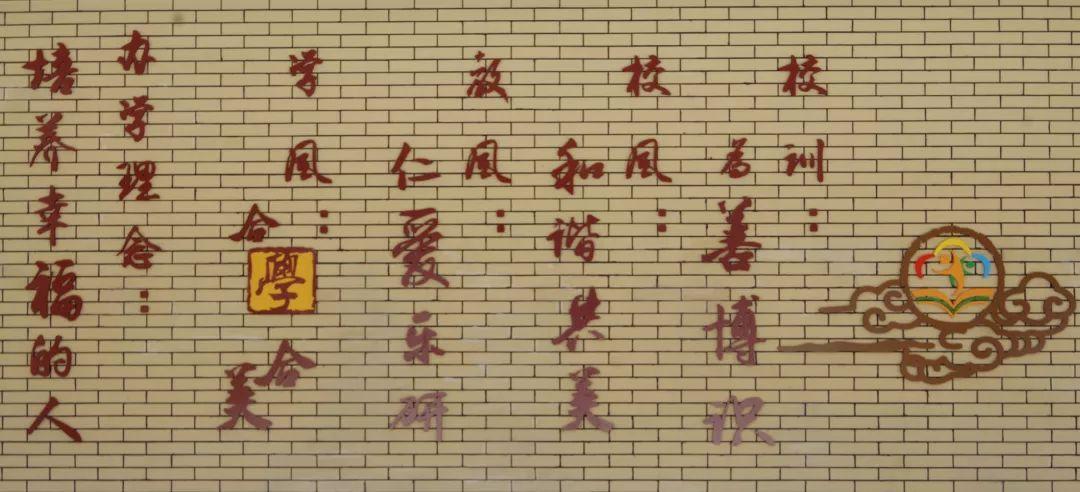 校训:
为善博识
校风:
和谐共美
教风:
仁爱乐研
学风:
合學合美
办学理念:
培养幸福的人